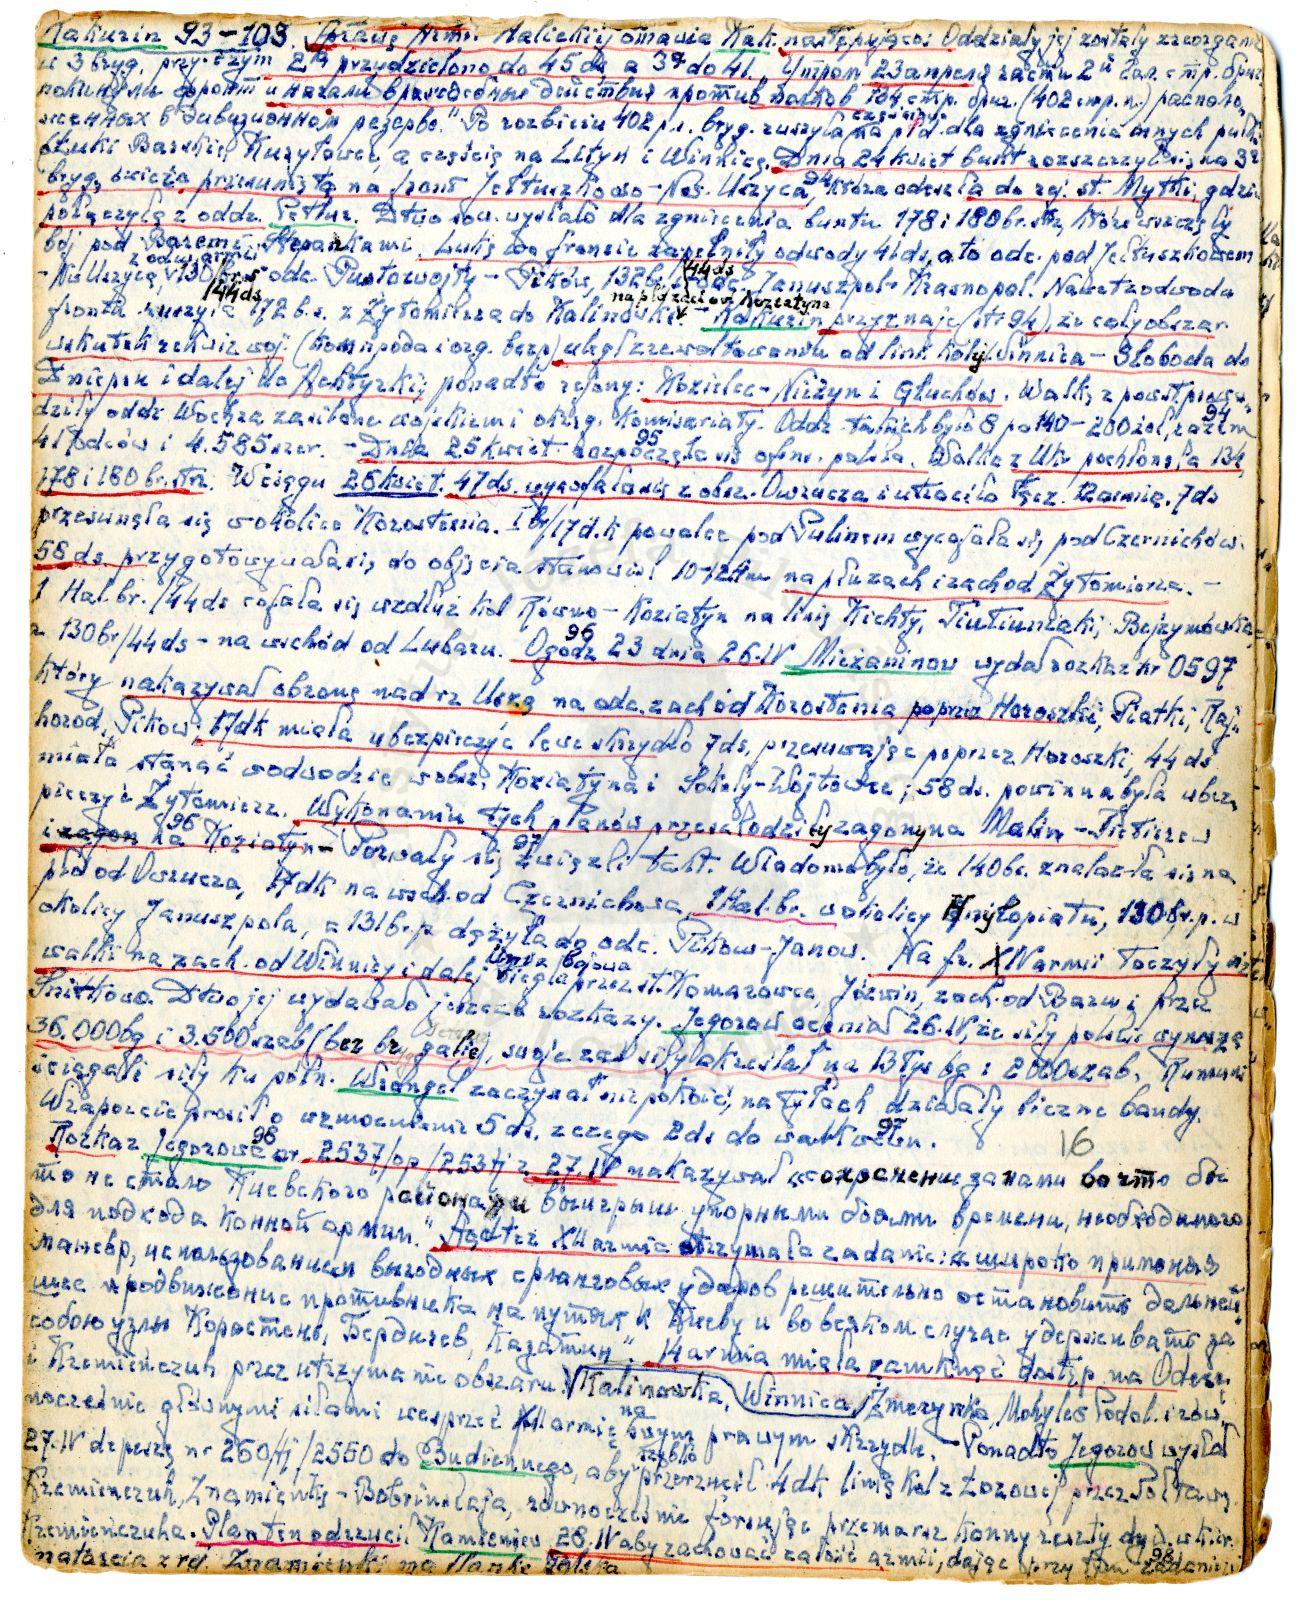 Kakurin 93–103. Sprawę Armii Halickiej omawia Kak. następująco: Oddziały jej zostały zreorgan.
w 3 bryg. przy czym 2gą przydzielono do 45 ds a 3ą do 41. "Утром 23 апреля части 2й Гал. стр. бриг.
покинули фронт и начали враждебные действия против 134 стр. бриг. (402 стр. п.) располо-
женных в дивизионном резерве." Po rozbiciu 402 p.s. bryg. ruszyła częściowo na płd. dla zgniecenia innych pułk.
(Łuki Barskie, Kuryłowce, a częścią na Lityn i Winnicę. Dnia 24 kwiet. bunt rozszerzył się na 3ą
bryg. świeżo przesuniętą na front Jełtuszkowo – Now. Uszyca, 94 która odeszła do rej. st. Mytki, gdzie
połączyła z oddz. Petlur. D-two sow. wysłało dla zgniecenia buntu 178 i 180 br. strz, które wszczęły
bój pod Barem i Stepankami. Lukę we froncie zapełniły odwody 41 ds, a to odc. pod Jełtuszkowem
– N. Uszycą, z odwodami 130 br. s 44 ds odc. Pustowojty – Pików, 132 b. s 44 ds odc. Januszpol – Krasnopol. Nawet z odwodu
frontu ruszyła 172 b.s. z Żytomierza do Kalinówki na płd zachód Kozatyna – Kakurin przyznaje (str 94), że cały obszar
wskutek rekwizycji (Komnpoda i org. bezp) uległ zrewoltowaniu od linii kolej. Winnica – Słoboda do
Dniepru i dalej do Achtyrki, ponadto rejony: Kozielec – Nieżyn i Głuchów. Walkę z powst. prowa-
dziły oddz. Wochra zasilone wojskiem i okręg. Komisariaty. Oddz. takich było 8 po 140–200 żoł, razem 94
41 dców i 4.585 szer. – Dnia 25 kwiet. 95 rozpoczęła się ofens. polska. Walka z Ukr. pochłonęła 134,
178 i 180 br. strz. W ciągu 26 kwiet. 47 ds. wycofała się z obsz. Owrucza i utraciła łącz. z armią. 7 ds
przesunęła się w okolice Korostenia. I br/17 d.k po walce pod Pulinem wycofała się pod Czerniechów.
58 ds. przygotowywała się do objęcia stanowisk 10–12 km na płn zach i zachod Żytomierza. –
1 Hal. br. /44 ds cofała się wzdłuż kol Równo – Koziatyn na linię Kichty, Tiutiunniki, Bejzymówka,
a 130 br/44 ds – na wschód od Lubaru. O godz 96 23 dnia 26.IV Mieżeninow wydał rozkaz nr 0597
który nakazywał obronę nad rz Uszą na odc. zachód Korostenia poprzez Horoszki, Piatki, Raj-
horod, Pików, 17 dk miała ubezpieczyć lewe skrzydło 7 ds, przesuwając poprzez Horoszki, 44 ds
miała stanąć w odwodzie w obsz. Koziatyna i Sokoły – Wójtowce; 58 ds. powinna była ubez-
pieczyć Żytomierz. Wykonaniu tych planów przeszkodziły zagony na Malin – Teterew
i zagon na 96 Koziatyn – Porwały się 97 związki takt. Wiadomo było, że 140 br. znalazła się na
płd od Owrucza, 17 dk na wsch. od Czernichowa, 1 Hal. br. w okolicy Hnyłopiatu, 130 br. p. w
okolicy Januszpola, a 131 br. p dążyła do odc. Pików – Janow. Na fr. XIV armii toczyły się
walki na zach. od Winnicy i dalej Linia bojowa biegła przez st. Komarowce, Józwin, zach. od Baru i przez
Snitkowo. D-two jej wydawało jeszcze rozkazy. Jegorow oceniał 26.IV, że siły polskie wynoszą
36.000 bg i 3.500 szab (bez br. galic), swoje zaś siły określał na 13 tys bg i 2000 szab. Rumuni
ściągali siły ku półn. Wrangel zaczynał niepokoić, na tyłach działały liczne bandy.
W raporcie prosił o wzmocnienie 5 ds. z czego 2 ds do walk wewn. 97
16
Rozkaz Jegorowa 98 nr. 2537/op /253 tj z 27.IV nakazywał "сохранение за нами во что бы
то не стало Киевского района и выигрыш упорными боями времени, необходимого
для подхода Конной армии." Stąd też XII armia otrzymała zadanie: "широко применяя
маневр, использованием выгодных фланговых ударов решительно остановить дальней-
шее продвижение противника на путях к Киеву и во всяком случае удерживать за
собою узлы Коростень, Бердичев, Казатин". 14 armia miała zamknąć dostęp na Odessę
i Krzemieńczuk przez utrzymanie obszaru: Kalinowka, Winnica, Żmerynka, Mohylew Podol. i rów-
nocześnie głównymi siłami wesprzeć XII armię na swym prawym skrzydle. – Ponadto Jegorow wysłał
27.IV depeszę nr 260/tj /2550 do Budiennego, aby szybko przerzucił 4 dk linią kol z Łozowej przez Połtawę,
Krzemieńczuk, Znamienkę – Bobrinskaja, równocześnie forsując przemarsz konny reszty dyw. w kier.
Krzemieńczuka. Plan ten odrzucił Kamieniew 28.IV aby zachować całość armii, dając przy tym 98 zadanie
natarcia z rej. Znamienki na flankę polską